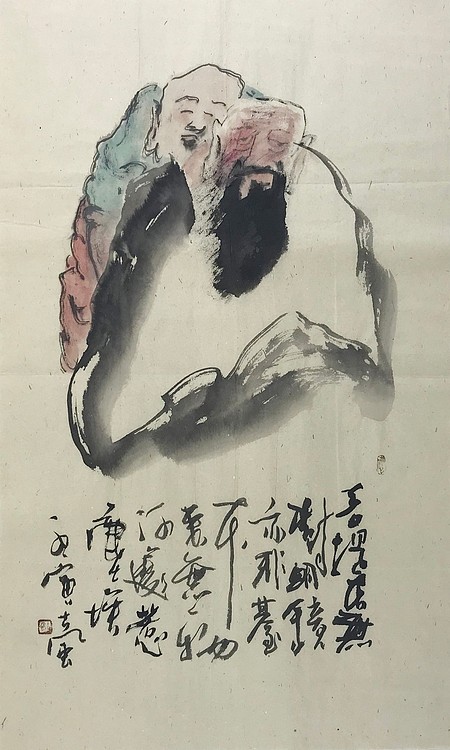 菩提本無
樹明鏡
亦非臺
本
來無一物
何處惹
塵埃